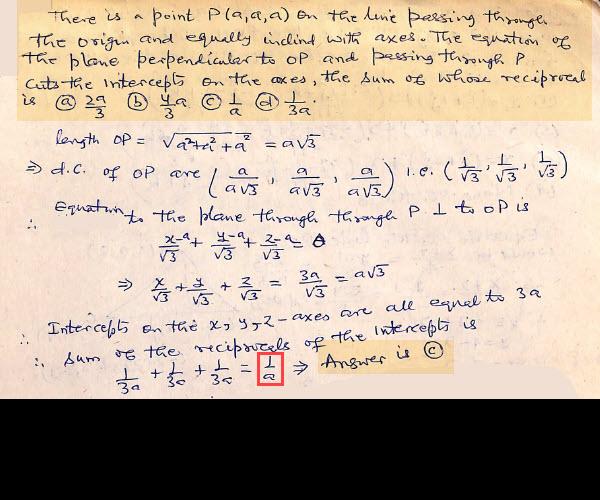 There is a point P(a,a,a) on the line passing through
the origin and equally inclind with axes. The equation of
the plane perpendicular to OP and passing through P
cuts the intercepts on the axes, the sum of whose reciprocal
is (a) 2a/3 (b) 4/3 a (c) 1/a (d) 1/3a.
length OP = √(a²+a²+a²) = a√3
⇒ d.c. of OP are (a/a√3, a/a√3, a/a√3) i.e. (1/√3, 1/√3, 1/√3)
∴ Equation to the plane through through P ⊥ to OP is
x-a/√3 + y-a/√3 + z-a/√3 = 0
⇒ x/√3 + y/√3 + z/√3 = 3a/√3 = a√3
∴ Intercepts on the x, y, z - axes are all equal to 3a
∴ sum of the reciprocals of the intercepts is
1/3a + 1/3a + 1/3a = 1/a ⇒ Answer is (c)